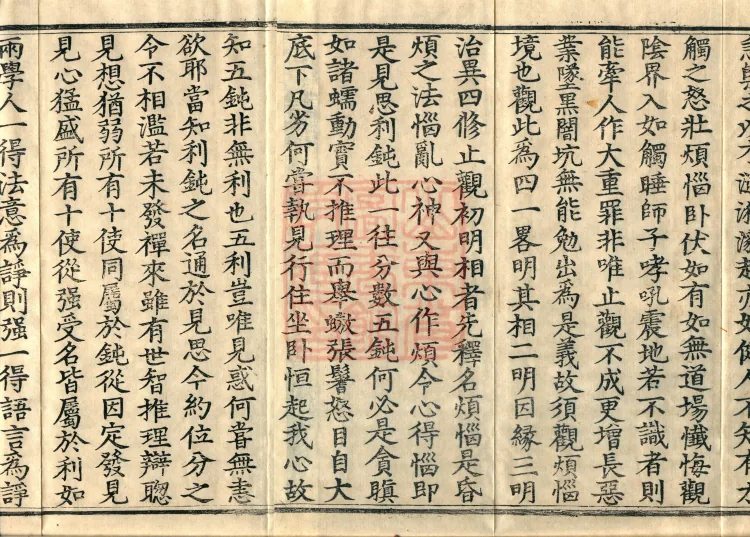 起亦如健人不知有
觸之怒壯煩惱卧伏如有如無道場懺悔觀
陰界入如觸睡師子哮吼震地若不識者則
能牽人作大重罪非唯止觀不成更增長惡
業墜黑闇坑無能勉出為是義故須觀煩惱
境也觀此為四一畧明其相二明因緣三明
治異四修止觀初明相者先釋名煩惱是昏
煩之法惱亂心神又與心作煩令心得惱即
是見思利鈍此一往分數五鈍何必是貪瞋
如諸蠕動實不推理而舉螯張髯怒目自大
底下凡劣何甞執見行住坐卧恒起我心故
知五鈍非無利也五利豈唯見惑何甞無恚
欲耶當知利鈍之名通於見思今約位分之
令不相濫若未發禪來雖有世智推理辯聰
見想猶弱所有十使同屬於鈍從因定發見
見心猛盛所有十使從强受名皆屬於利如
兩學人一得法意為諍則强一得語言為諍